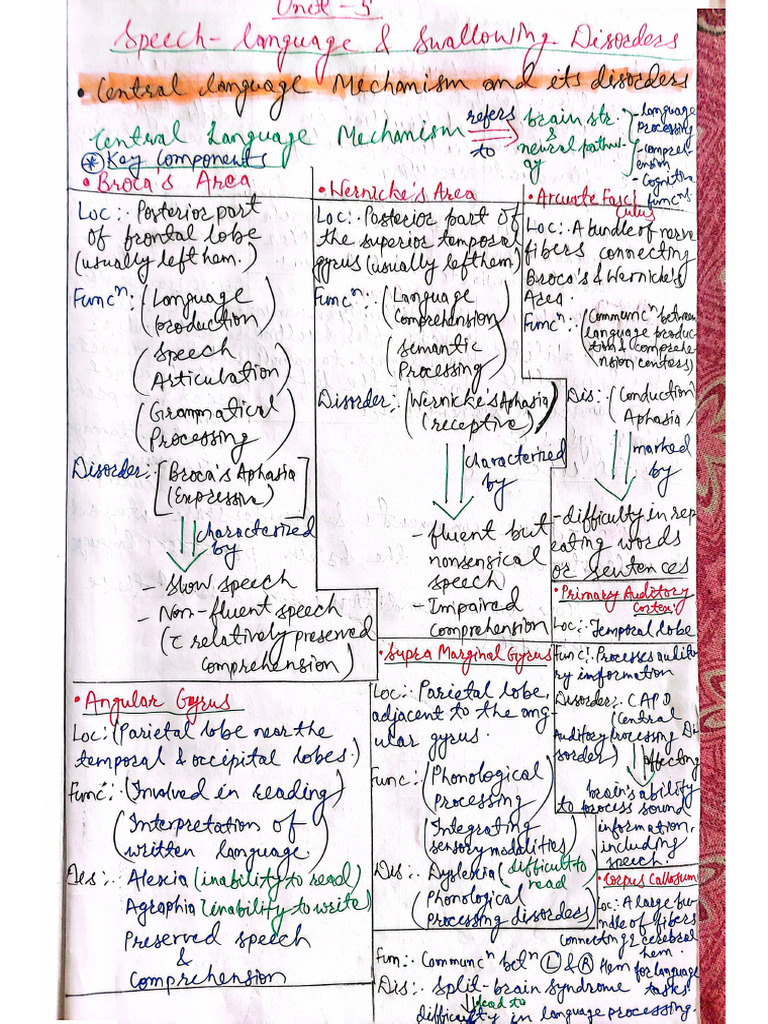 Unit - 5
Speech-language & Swallowing Disorders
• Central language Mechanism and its disorders
Central Language Mechanism refers to brain str. & neural pathway
- language processing
- comprehension
- Cognitive funcns
* Key Components
• Broca's Area
Loc:- Posterior part
of frontal lobe
(usually left hem.)
Funcn: (Language
production)
(Speech
Articulation)
(Grammatical
Processing)
Disorder:- [Broca's Aphasia
(Expressive)]
characterized
by
- Slow speech
- Non-fluent speech
(c relatively preserved
comprehension)
• Wernicke's Area
Loc:- Posterior part of
the superior temporal
gyrus (usually left hem)
Funcn:- (Language
Comprehension)
(Semantic
Processing)
Disorder:- (Wernicke's Aphasia)
(receptive)
characterized
by
- fluent but
nonsensical
speech
- Impaired
comprehension
• Arcuate Fasci
culus
Loc:- A bundle of nerve
fibers connecting
Broca's & Wernicke's
Area.
Funcn:- (Communicn between
language produc-
tion & comprehe-
nsion centers)
Dis:- (Conduction
Aphasia)
marked
by
- difficulty in rep
eating words
or sentences
• Primary Auditory
Cortex:
Loc:- Temporal lobe
Func:- Processes audito
ry information
Disorder:- CAPD
(Central
Auditory Processing Di
sorder)
affecting
brain's ability
to process sound
information,
including
speech
• Angular Gyrus
Loc:- (Parietal lobe near the
temporal & occipital lobes.)
Func:- (Involved in reading)
(Interpretation of
written language.)
Des:- Alexia (inability to read)
Agraphia (inability to write)
Preserved speech
&
Comprehension
• Supra Marginal Gyrus
Loc:- Parietal lobe,
adjacent to the ang
ular gyrus.
Func:- (Phonological
Processing)
(Integrating
sensory modalities)
Dis:- Dyslexia (difficult to
read)
(Phonological
Processing disorders)
• Corpus Callosum
Loc:- A large bu
ndle of fibers
connecting 2 cerebral
hem.
Fun:- Communcn betn (L) & (R) Hem for language
tasks.
Dis:- Split-brain syndrome
lead to
difficulty in language processing.